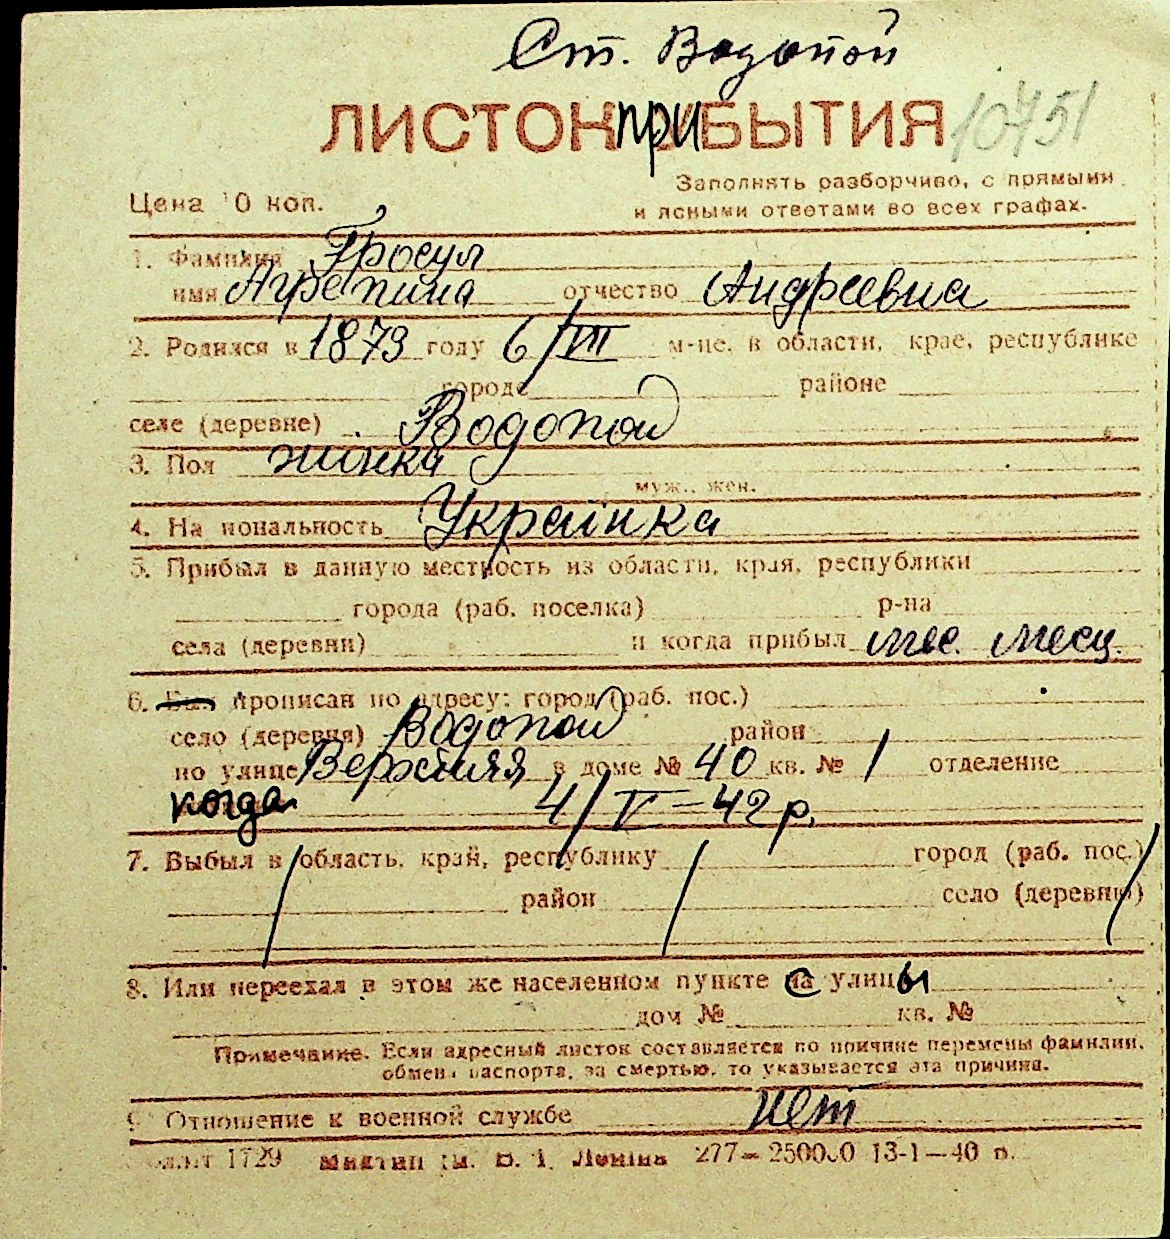 Ст. Водопой
ЛИСТОК ПРИБЫТИЯ 10451
Заполнять разборчиво, с прямыми
Цена 10 коп. и ясными ответами во всех графах.
1. Фамилия Гросул
имя Агрепина отчество Андреевна
2. Родился в 1873 году 6/VII м-це, в области, крае, республике
городе районе
селе (деревне) Водопой
3. Пол жінка
муж., жен.
4. Национальность Українка
5. Прибыл в данную местность из области, края, республики
города (раб. поселка) р-на
села (деревни) и когда прибыл мес. месц.
6. Был прописан по адресу: город (раб. пос.)
село (деревня) Водопой район
по улице Верхняя в доме № 40 кв. № 1 отделение
когда 4/V-42 р.
7. Выбыл в область, край, республику город (раб. пос.)
район село (деревню)
8. Или переехал в этом же населенном пункте с улицы
дом № кв. №
Примечание. Если адресный листок составляется по причине перемены фамилии,
обмена паспорта, за смертью, то указывается эта причина.
9. Отношение к военной службе нет
1729 277—250000 13-1—40 р.